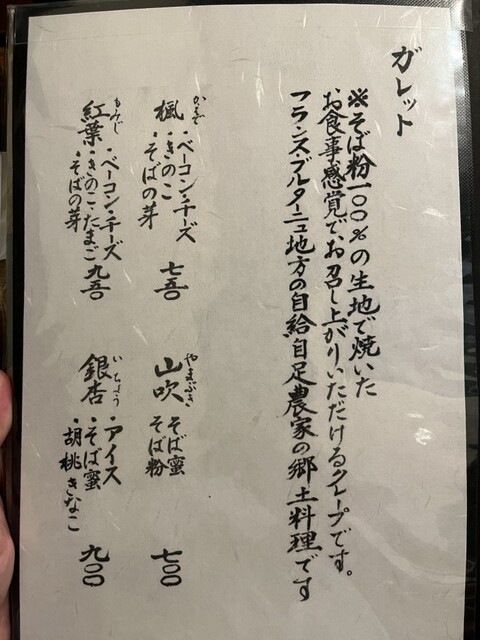 ガレット
※そば粉一〇〇％の生地で焼いた
お食事感覚で、お召し上がりいただけるクレープです。
フランス・ブルターニュ地方の自給自足農家の郷土料理です
かえで
楓
・ベーコン・チーズ
・きのこ
・そばの芽
七五〇
もみじ
紅葉
・ベーコン・チーズ
・きのこ・たまご
・そばの芽
九五〇
やまぶき
山吹
そば蜜
そば粉
七〇〇
いちょう
銀杏
・アイス
・そば蜜
・胡桃きなこ
九〇〇